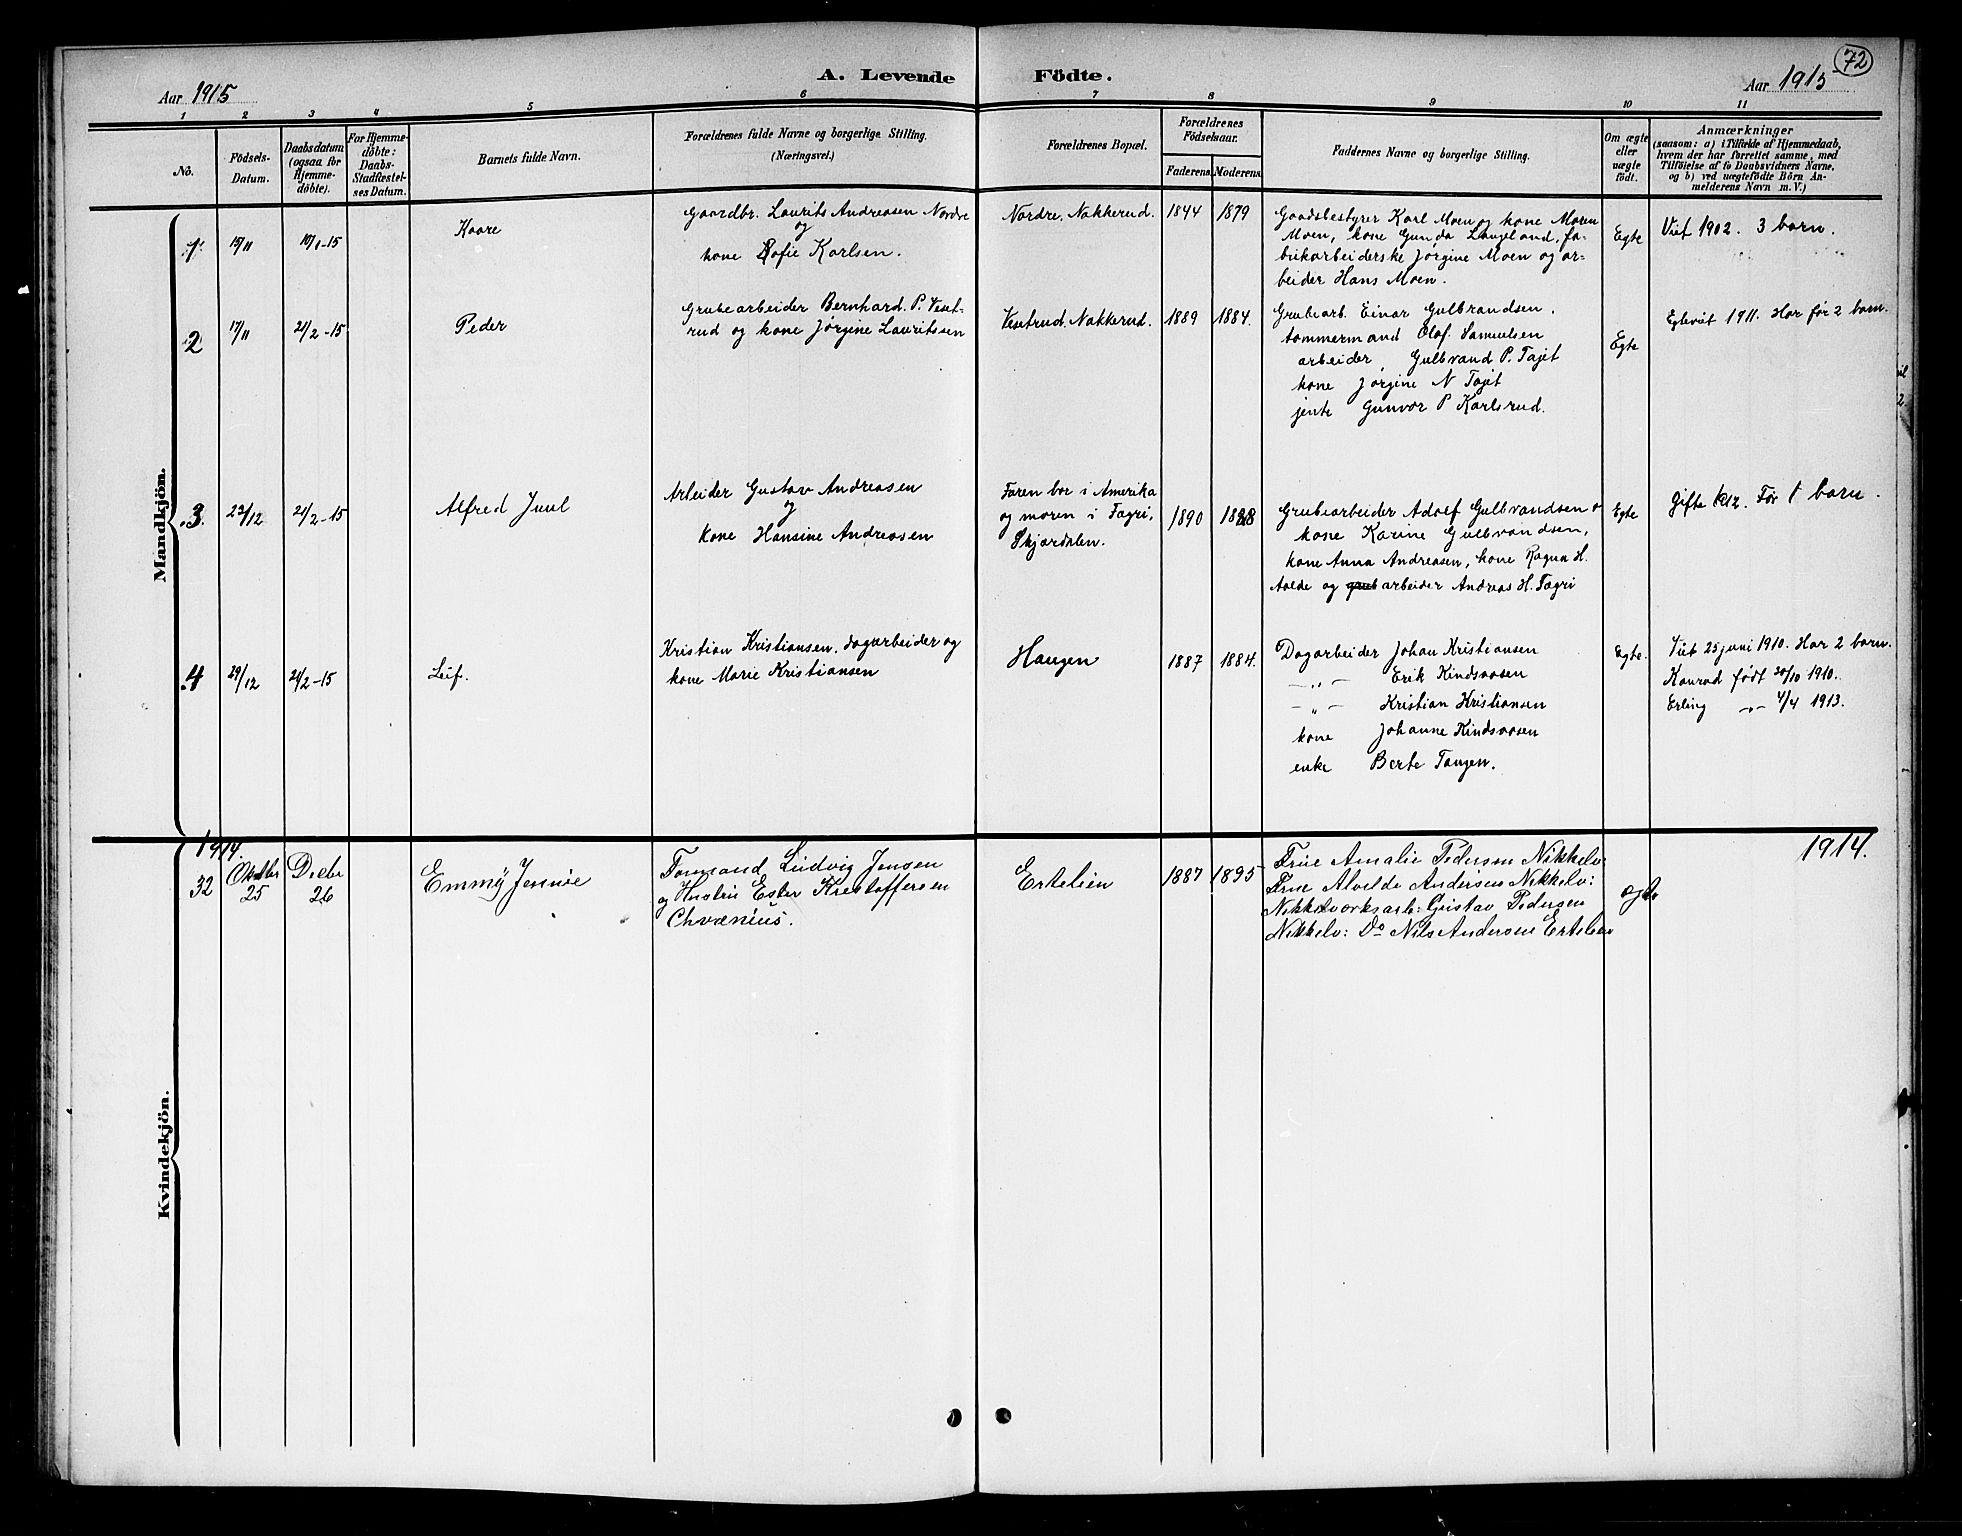 72
A. Levende Födte.
Aar 1915
Aar 1915
1 2 3 4 5 6 7 8 9 10 11
No.
Födsels-
Datum.
Daabsdatum
(ogsaa for
Hjemme-
döbte).
For Hjemme-
döbte:
Daabs-
Stadfæstel-
ses Datum.
Barnets fulde Navn.
Forældrenes fulde Navne og borgerlige Stilling.
(Næringsvei.)
Forældrenes Bopæl.
Forældrenes
Födselsaar.
Faderens. Moderens.
Faddernes Navne og borgerlige Stilling.
Om ægte
eller
uægte
födt.
Anmærkninger
(saasom: a) i Tilfælde af Hjemmedaab,
hvem der har forrettet samme, med
Tilföielse af to Daabsvidners Navne,
og b) ved uægtefödte Börn An-
melderens Navn m. V.)
Mandkjön.
1.
15/11
10/1-15
Kaare
Gaardbr. Laurits Andreasen Nordre
og
kone Sofie Karlsen.
Nordre. Nakkerud.
1844 1879
Gaadsbestyrer Karl Moen og kone Maren
Moen, kone Gunda Langeland, fa-
brikarbeiderske Jørgine Moen og ar-
beider Hans Moen.
Egte
Viet 1902. 3 barn.
2
17/11
21/2-15
Peder
Grubearbeider Bernhard. P. Veset-
rud og kone Jørgine Lauritssen
Vesetrud. Nakkerud.
1889 1884.
Grubearb. Einar Gulbrandsen.
tømmermand Olaf Samuelsen
arbeider, Gulbrand P. Tajet
kone Jørgine N Tajet
jente Gunvor P Karlsrud.
Egte
Egteviet 1911. Har før 2 barn.
3.
23/12
21/2-15
Alfred Juul
Arbeider Gustav Andreasen
og
kone Hansine Andreasen
Faren bor i Amerika
og moren i Fagri,
Skjærdalen.
1890 1888
Grubearbeider Adolf Gulbrandsen o
kone Karine Gulbrandsen,
kone Anna Andreasen, kone Ragna H.
Aalde og grubarbeider Andreas H. Fagri
Egte
Gifte 1912. Før 1 barn.
4
29/12
21/2-15
Leif.
Kristian Kristiansen, dagarbeider og
kone Marie Kristiansen
Haugen
1887 1884.
Dagarbeider Johan Kristiansen
—„— Erik Kindsvasen
—„— Kristian Kristiansen
kone Johanne Kindsvasen
enke Berte Tangen.
Egte.
Viet 25 juni 1910. Har 2 barn.
Konrad født 20/10 1910.
Erling —„— 4/4 1913.
Kvindekjön.
1914.
1914.
32
Oktbr
25
Decbr
26
Emmy Jennie
Formand Ludvig Jensen
og Hustru Ester Kristoffersen
Chvænius.
Ertelien
1887 1895
Frue Amalie Pedersen Nikkelv:
Frue Alvilde Andersen Nikkelv:
Nikkelværksarb: Gustav Pedersen
Nikkelv: Do Nils Andersen Ertelien
ægte